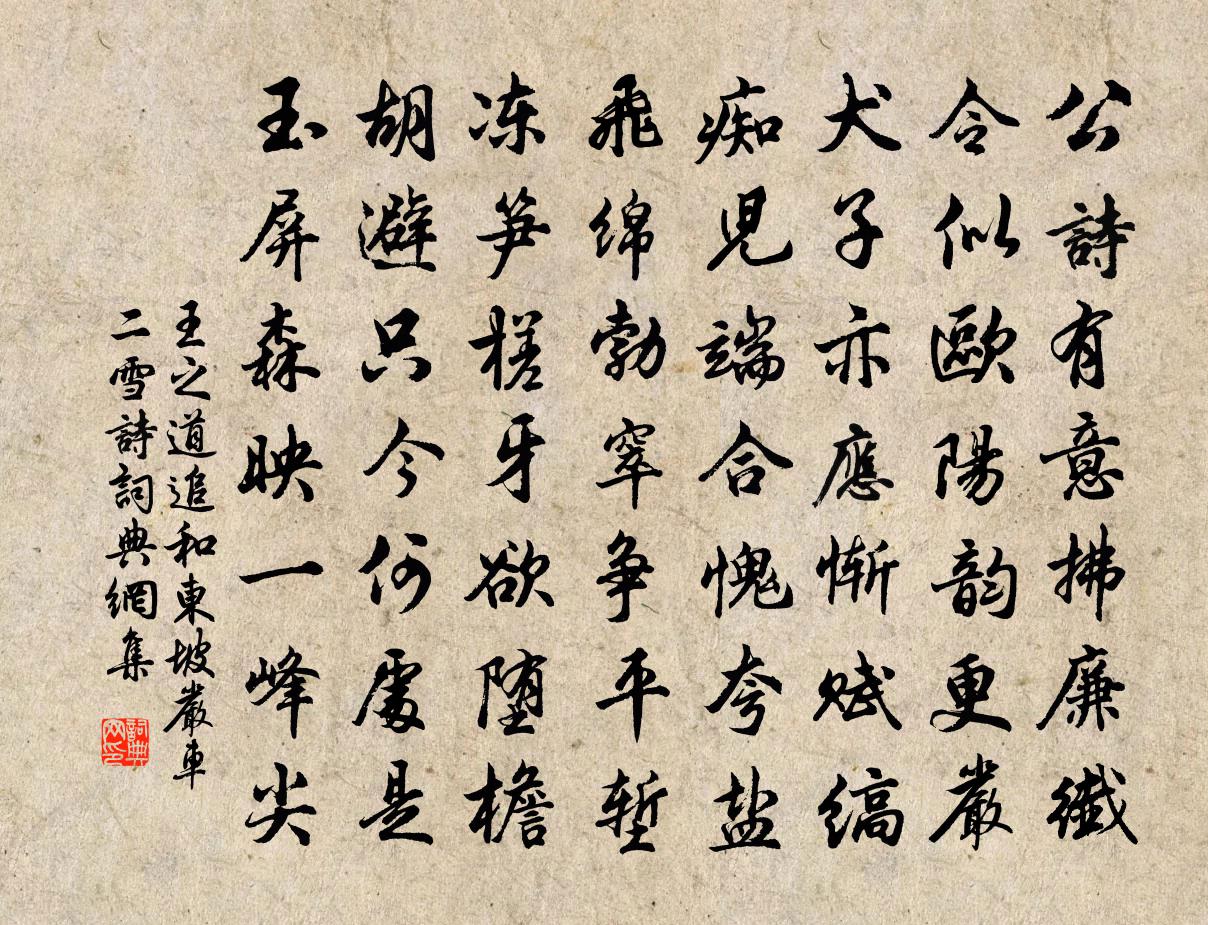 公詩有意拂廉纖
令似歐陽韵更嚴
犬子亦應慚赋縞
痴児端合愧夸盐
飛绵勃窣争平塹
冻笋槎牙欲堕檐
胡避只今何處是
玉屏森映一峰尖
王之道追和東坡嚴車
二雪詩詞典網集
詞典
网印